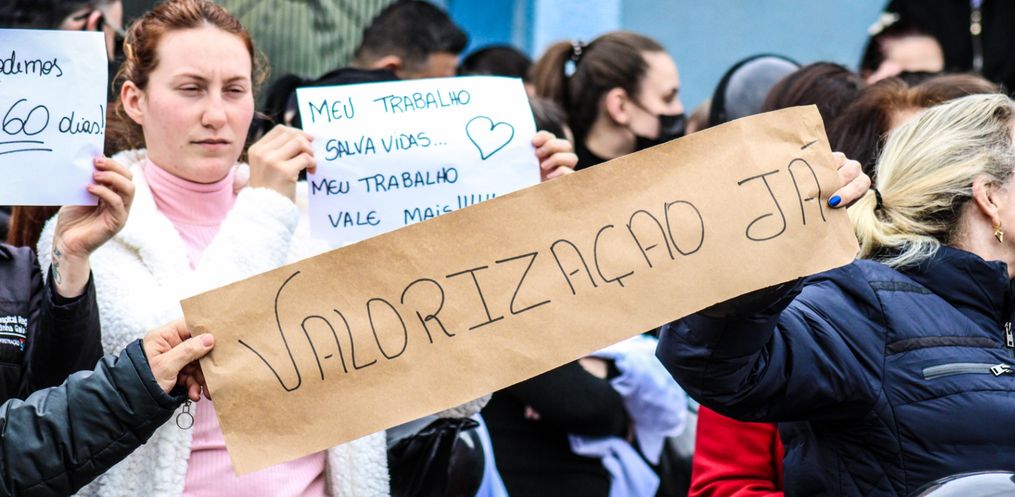 odemos
60 dias!
MEU TRABALHO
SALVA VIDAS...
MEU TRABALHO
VALE MAIS!!!!!!
VALORIZAÇÃO JÁ